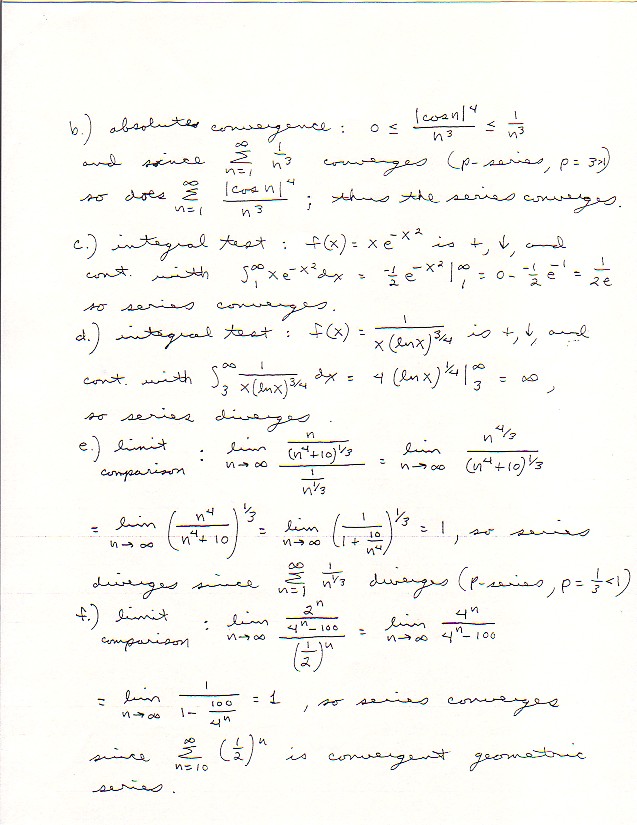 b.) absolute convergence : 0 ≤ |cos n|^4 / n^3 ≤ 1/n^3
and since ∑_{n=1}^{∞} 1/n^3 converges (p-series, p = 3>1)
so does ∑_{n=1}^{∞} |cos n|^4 / n^3 ; thus the series converges.
c.) integral test : f(x) = x e^{-x^2} is +, ↓, and
cont. with ∫_1^∞ x e^{-x^2} dx = -1/2 e^{-x^2} |_1^∞ = 0 - -1/2 e^{-1} = 1/2e
so series converges.
d.) integral test : f(x) = 1 / x(ln x)^{3/4} is +, ↓, and
cont. with ∫_3^∞ 1 / x(ln x)^{3/4} dx = 4 (ln x)^{1/4} |_3^∞ = ∞ ,
so series diverges .
e.) limit comparison : lim_{n→∞} (n / (n^4+10)^{1/3}) / (1 / n^{1/3}) = lim_{n→∞} n^{4/3} / (n^4+10)^{1/3}
= lim_{n→∞} (n^4 / n^4+10)^{1/3} = lim_{n→∞} (1 / 1 + 10/n^4)^{1/3} = 1 , so series
diverges since ∑_{n=1}^{∞} 1/n^{1/3} diverges (p-series, p = 1/3 < 1)
f.) limit comparison : lim_{n→∞} (2^n / 4^n - 100) / (1/2)^n = lim_{n→∞} 4^n / 4^n - 100
= lim_{n→∞} 1 / 1 - 100/4^n = 1 , so series converges
since ∑_{n=10}^{∞} (1/2)^n is convergent geometric
series .